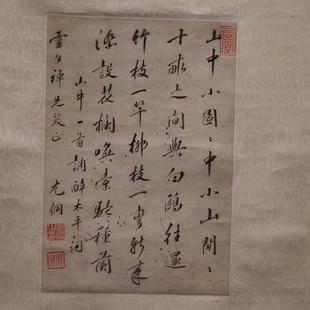 山中小園〻中小山閒〻
十畝之間與白鷗往還
竹枝一竿梛枝一彎新來
添設花欄喚索鈴種蘭
山中一首調醉太平詞
靈夕禪兄笑正 尤侗